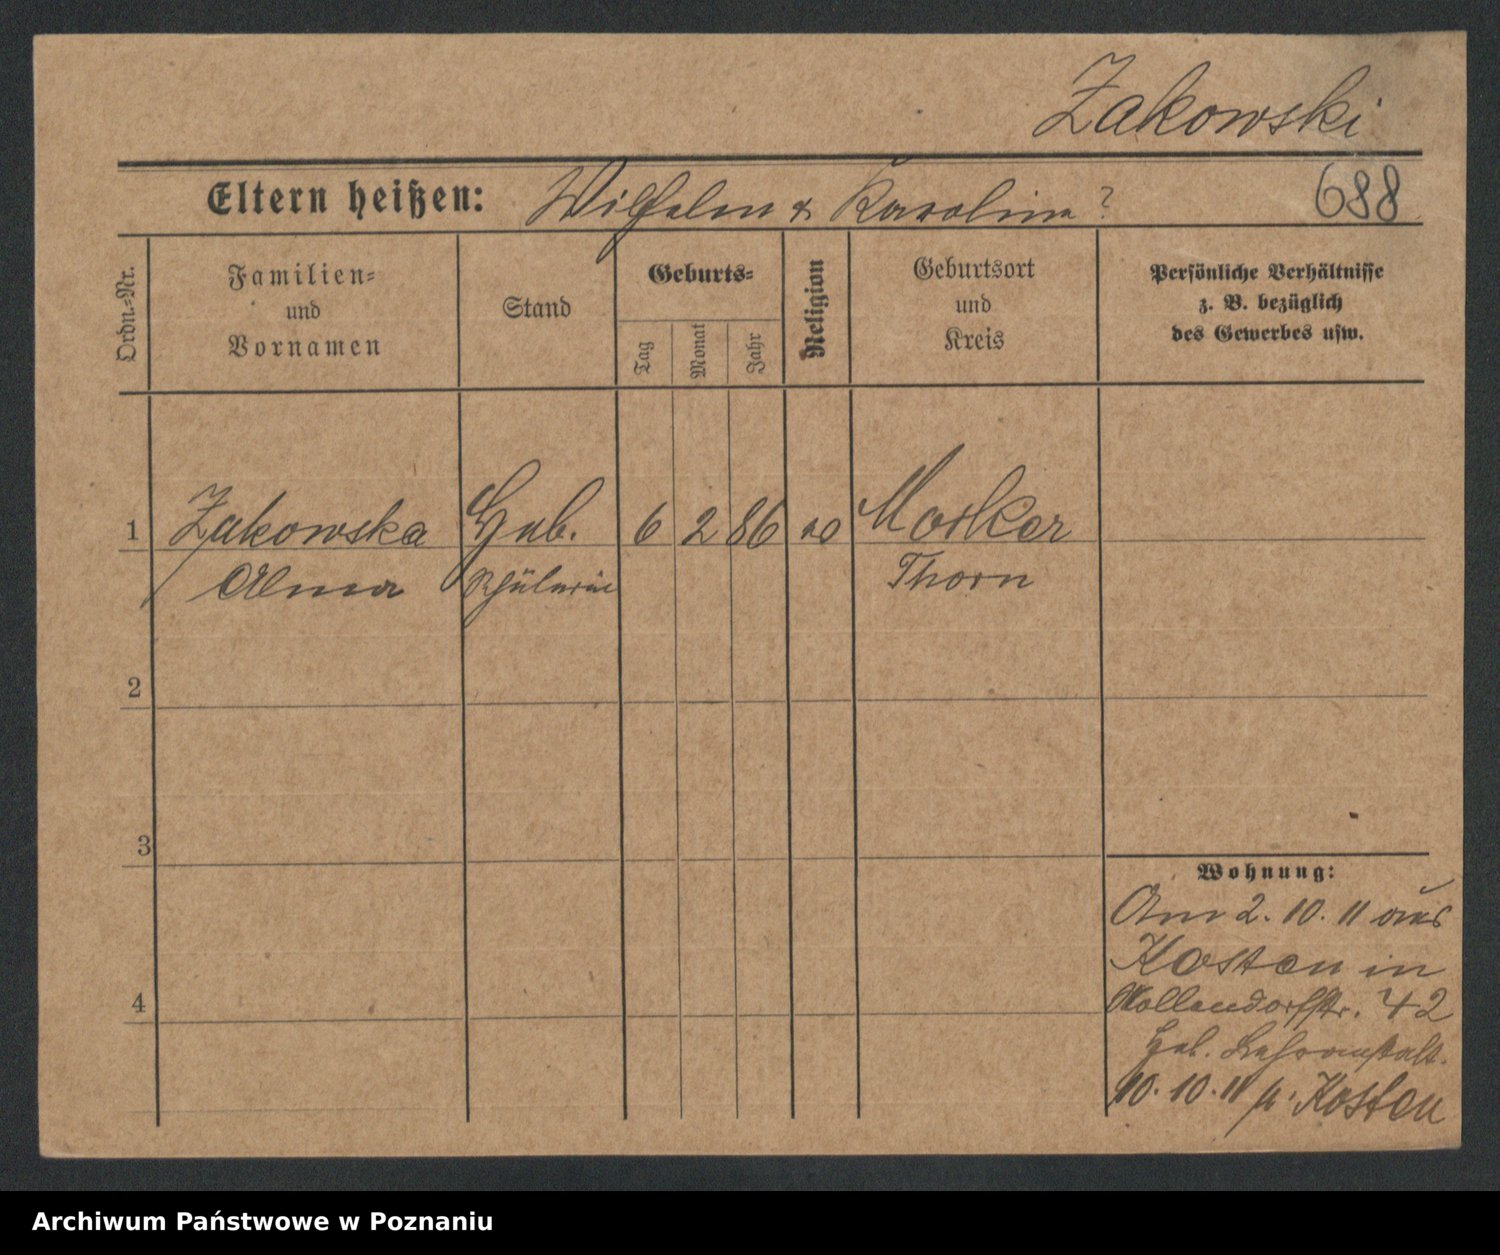 Zakowski
Eltern heißen: Wilhelm & Karolina ? 688
Ordn.-Nr.
Familien-
und
Vornamen
Stand
Geburts-
Tag
Monat
Jahr
Religion
Geburtsort
und
Kreis
Persönliche Verhältnisse
z. B. bezüglich
des Gewerbes usw.
1 Zakowska Heb. 6 2 86 Mocker
Alma Schülerin Thorn
2
3
4
Wohnung:
Am 2. 10. 11 aus
Kosten in
Nollendorfstr. 42
Heb. Lehranstalt.
10. 10. 11 n. Kosten
Archiwum Państwowe w Poznaniu